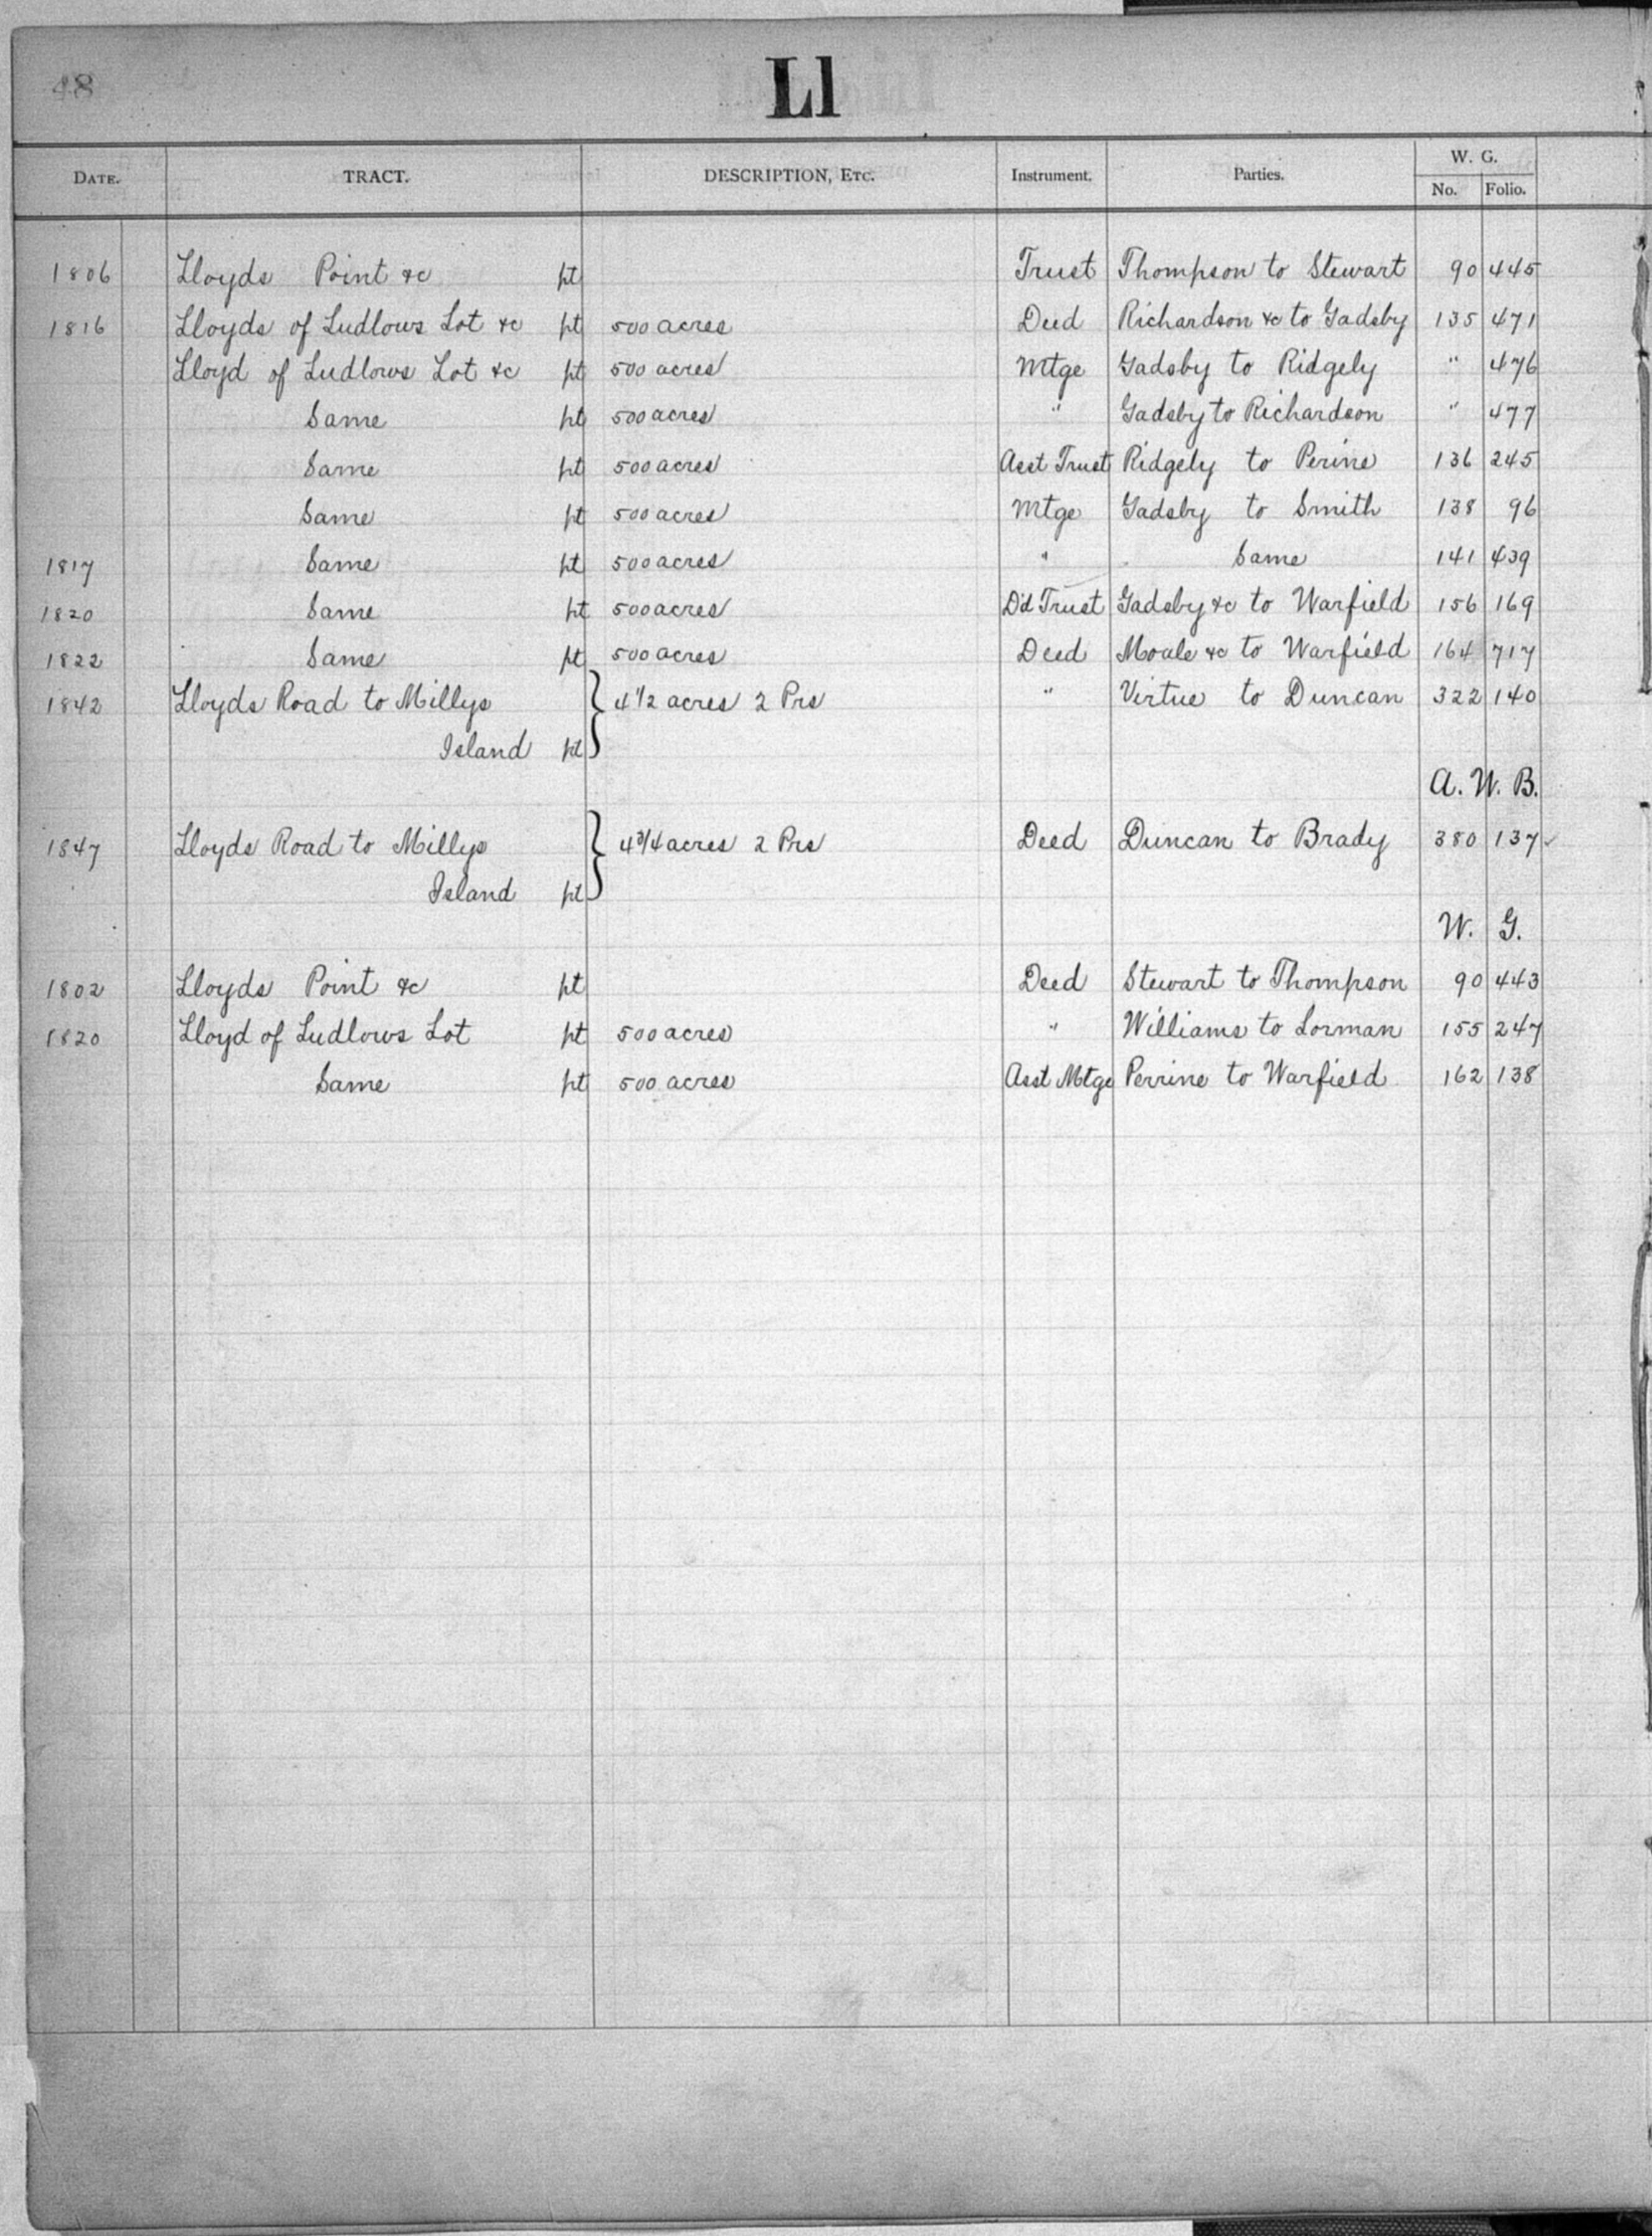 48
Ll
DATE. TRACT. DESCRIPTION, ETC. Instrument. Parties. W. G.
No. Folio.
1806 Lloyds Point &c pt Trust Thompson to Stewart 90 445
1816 Lloyds of Ludlows Lot &c pt 500 acres Deed Richardson &c to Gadsby 135 471
Lloyd of Ludlows Lot &c pt 500 acres Mtge Gadsby to Ridgely " 476
Same pt 500 acres " Gadsby to Richardson " 477
Same pt 500 acres Asst Trust Ridgely to Perine 136 245
Same pt 500 acres Mtge Gadsby to Smith 138 96
1817 Same pt 500 acres " Same 141 439
1820 Same pt 500 acres D'd Trust Gadsby &c to Warfield 156 169
1822 Same pt 500 acres Deed Moale &c to Warfield 164 717
1842 Lloyds Road to Millys } 4 1/2 acres 2 Prs " Virtue to Duncan 322 140
Island pt
A. W. B.
1847 Lloyds Road to Millys } 4 3/4 acres 2 Prs Deed Duncan to Brady 380 137
Island pt
W. G.
1802 Lloyds Point &c pt Deed Stewart to Thompson 90 443
1820 Lloyd of Ludlows Lot pt 500 acres " Williams to Lorman 155 247
Same pt 500 acres Asst Mtge Perrine to Warfield 162 138